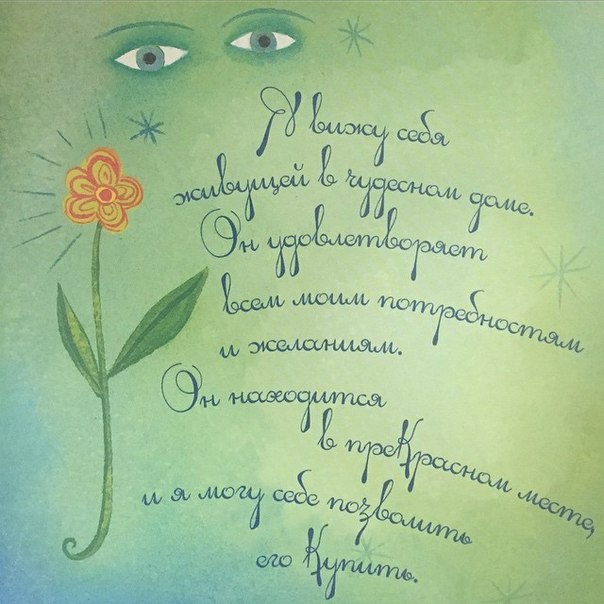 Я вижу себя
живущей в чудесном доме.
Он удовлетворяет
всем моим потребностям
и желаниям.
Он находится
в преКрасном месте,
и я могу себе позволить
его Купить.